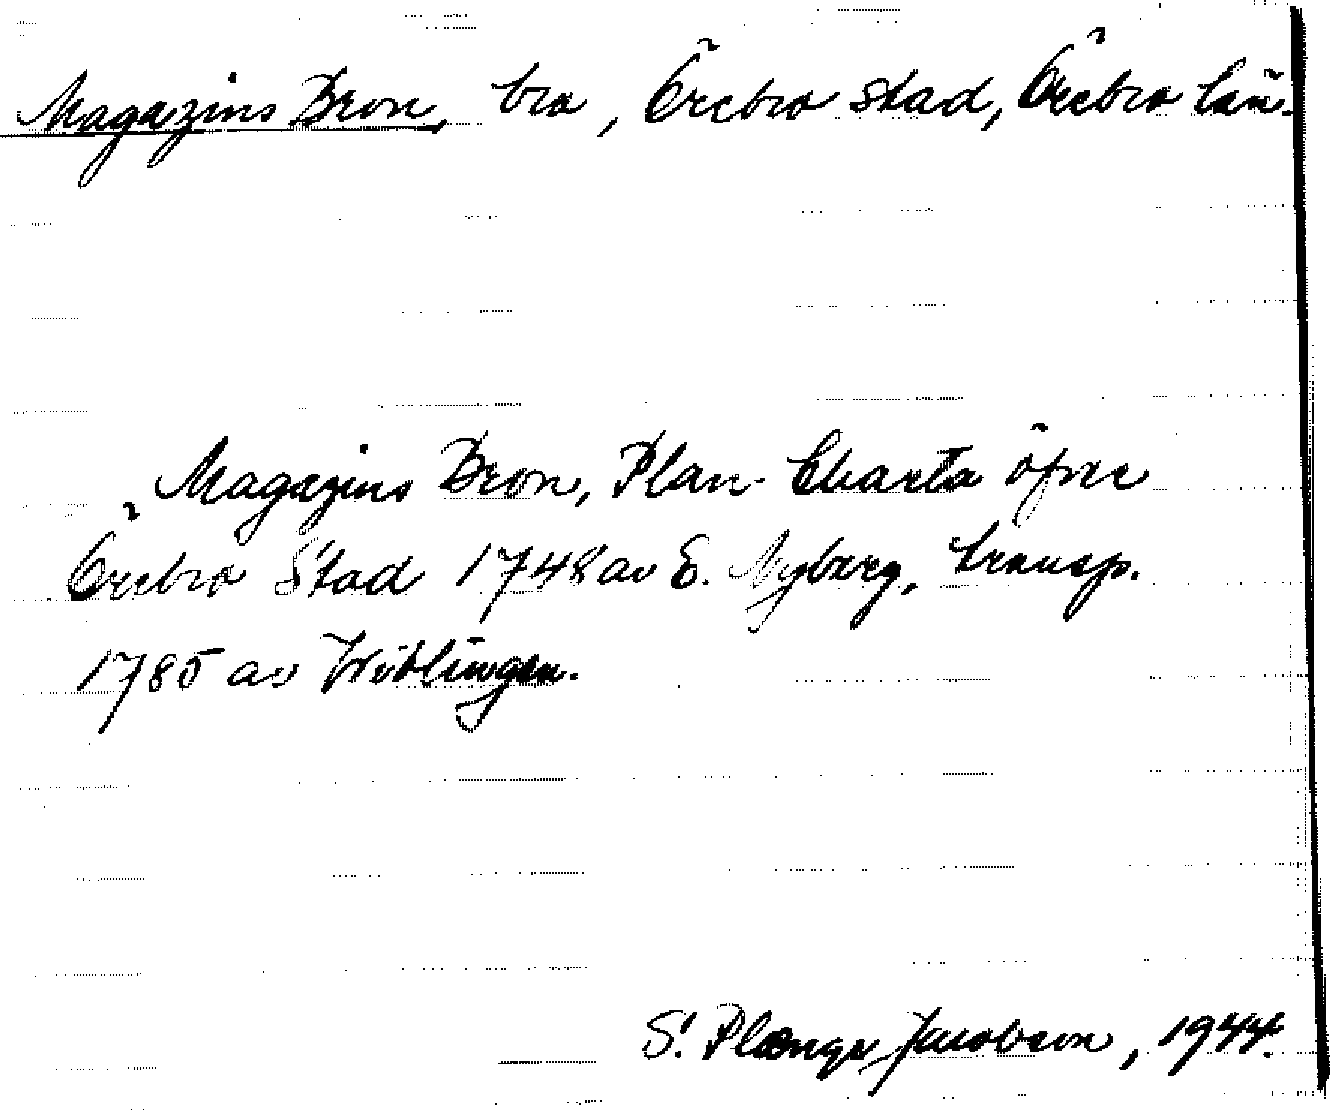 Magazins Bron, bro, Örebro stad, Örebro län.
Magazins Bron, Plan Charta öfver
Örebro Stad 1748 av E. Nyberg, transp.
1785 av Wiblingen.
S. Plænge Jacobson, 1944.